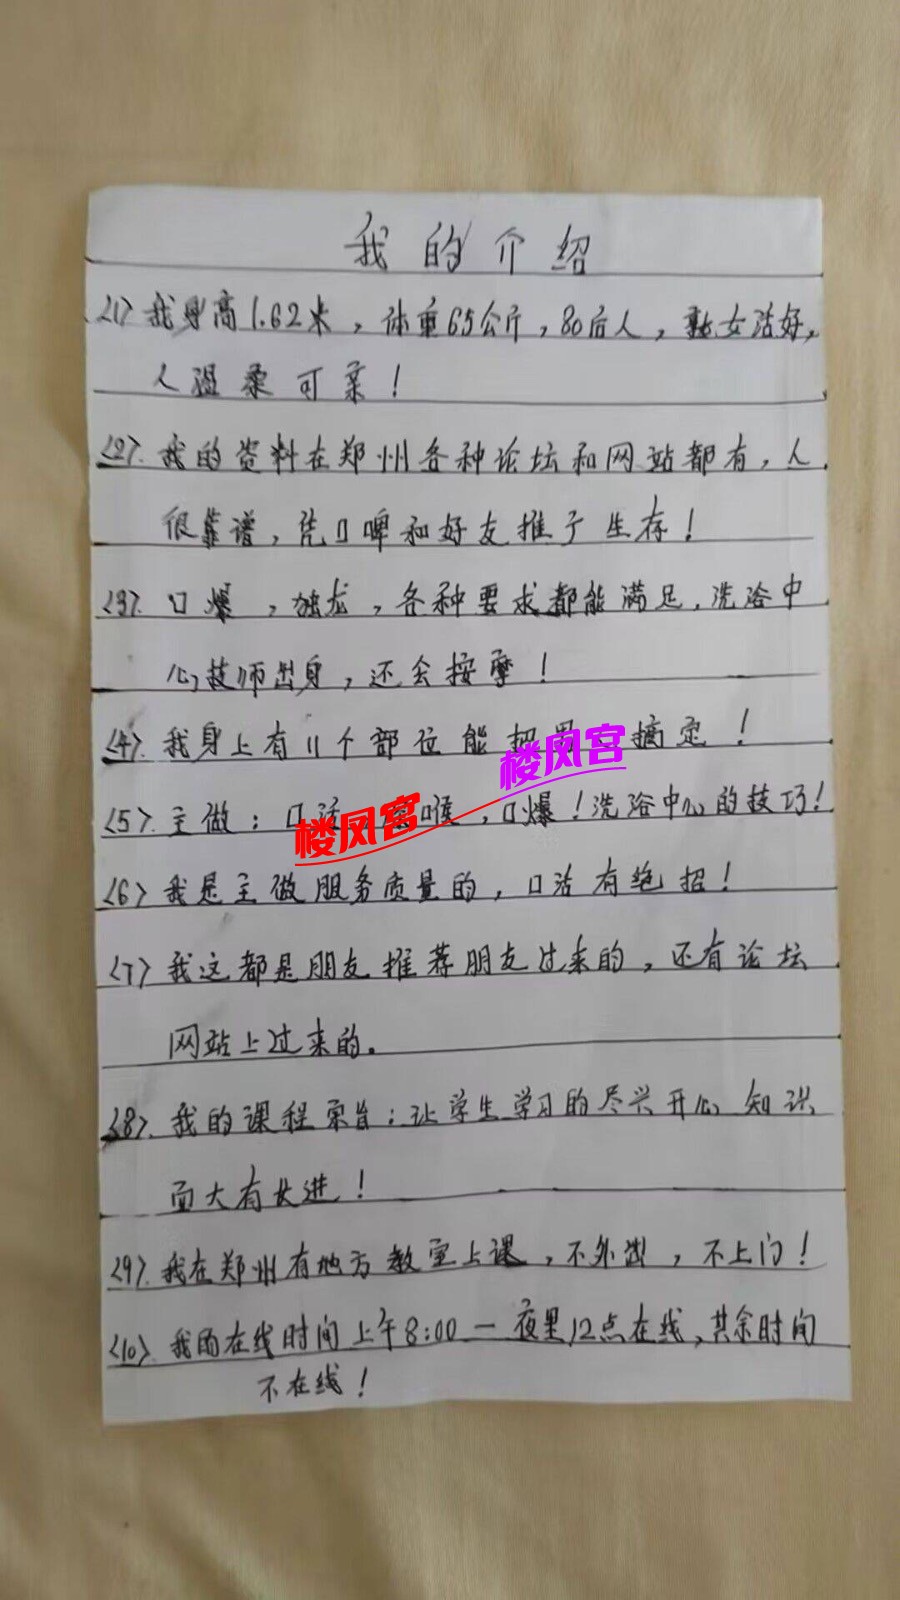 我的介绍
<1>我身高1.62米，体重65公斤，80后人，熟女活好，
人温柔可亲！
<2>.我的资料在郑州各种论坛和网站都有，人
很靠谱，凭口啤和好友推于生存！
<3>.口爆，独龙，各种要求都能满足.洗浴中
心技师出身，还会按摩！
<4>.我身上有11个部位能把 搞定！
楼凤宫
<5>.主做：口 喉，口爆！洗浴中心的技巧！
楼凤宫
<6>我是主做服务质量的，口活有绝招！
<7>我这都是朋友推荐朋友过来的，还有论坛
网站上过来的。
<8>.我的课程宗旨：让学生学习的尽兴开心知识
面大有长进！
<9>.我在郑州有地方教室上课，不外出，不上门！
<10>.我的在线时间上午8:00一夜里12点在线,其余时间
不在线！